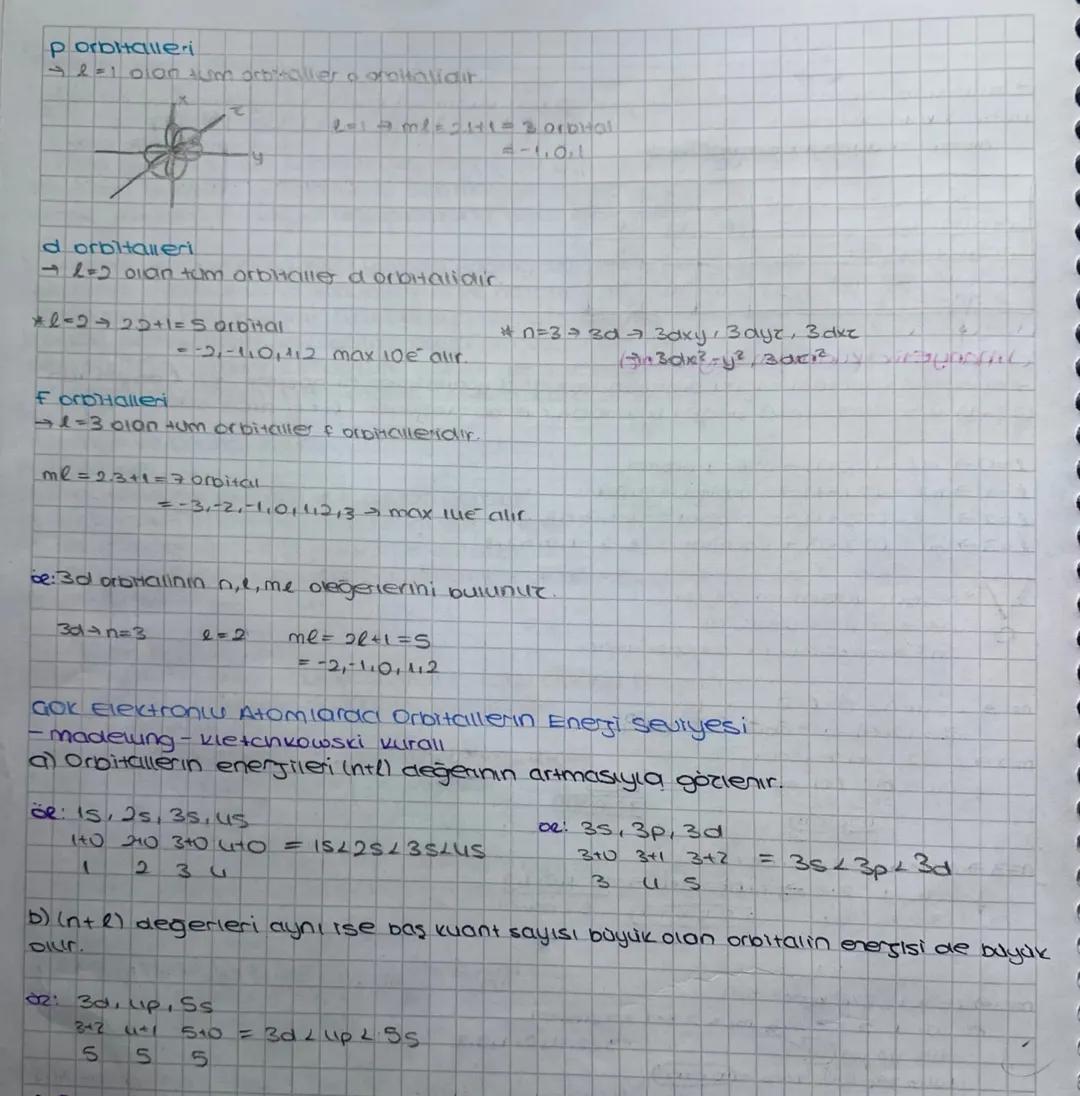 p orbitalleri
→ l=1 olan tüm orbitaller p orbitalidir.
x
z
y
l=1 → ml = 2.1+1 = 3 orbital
= -1, 0, 1
d orbitalleri
→ l=2 olan tüm orbitaller d orbitalidir
* l=2 → 2.2+1 = 5 orbital
= -2, -1, 0, 1, 2 max 10e⁻ alır.
* n=3 → 3d → 3dxy, 3dyz, 3dxz
3dx²-y², 3dz²
f orbitalleri
→ l=3 olan tüm orbitaller f orbitalleridir.
ml = 2.3+1 = 7 orbital
= -3, -2, -1, 0, 1, 2, 3 → max 14e⁻ alır
ör: 3d orbitalinin n, l, ml değerlerini bulunuz.
3d → n=3 l=2 ml = 2l+1 = 5
= -2, -1, 0, 1, 2
Çok Elektronlu Atomlarda Orbitallerin Enerji Seviyesi
- madelung - kletchkowski kuralı
a) Orbitallerin enerjileri (n+l) değerinin artmasıyla gözlenir.
ör: 1s, 2s, 3s, 4s
1+0 2+0 3+0 4+0 = 1s < 2s < 3s < 4s
1 2 3 4
ör: 3s, 3p, 3d
3+0 3+1 3+2 = 3s < 3p < 3d
3 4 5
b) (n+l) değerleri aynı ise baş kuant sayısı büyük olan orbitalin enerjisi de büyük
olur.
ör: 3d, 4p, 5s
3+2 4+1 5+0 = 3d < 4p < 5s
5 5 5